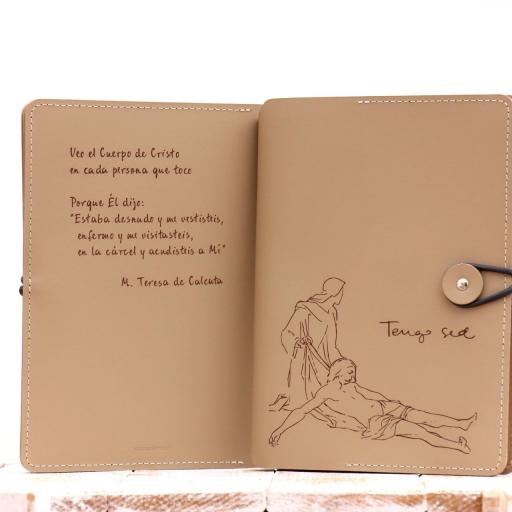 Veo el Cuerpo de Cristo
en cada persona que toco
Porque Él dijo:
"Estaba desnudo y me vestisteis,
enfermo y me visitasteis,
en la cárcel y acudisteis a Mí"
M. Teresa de Calcuta
Tengo sed